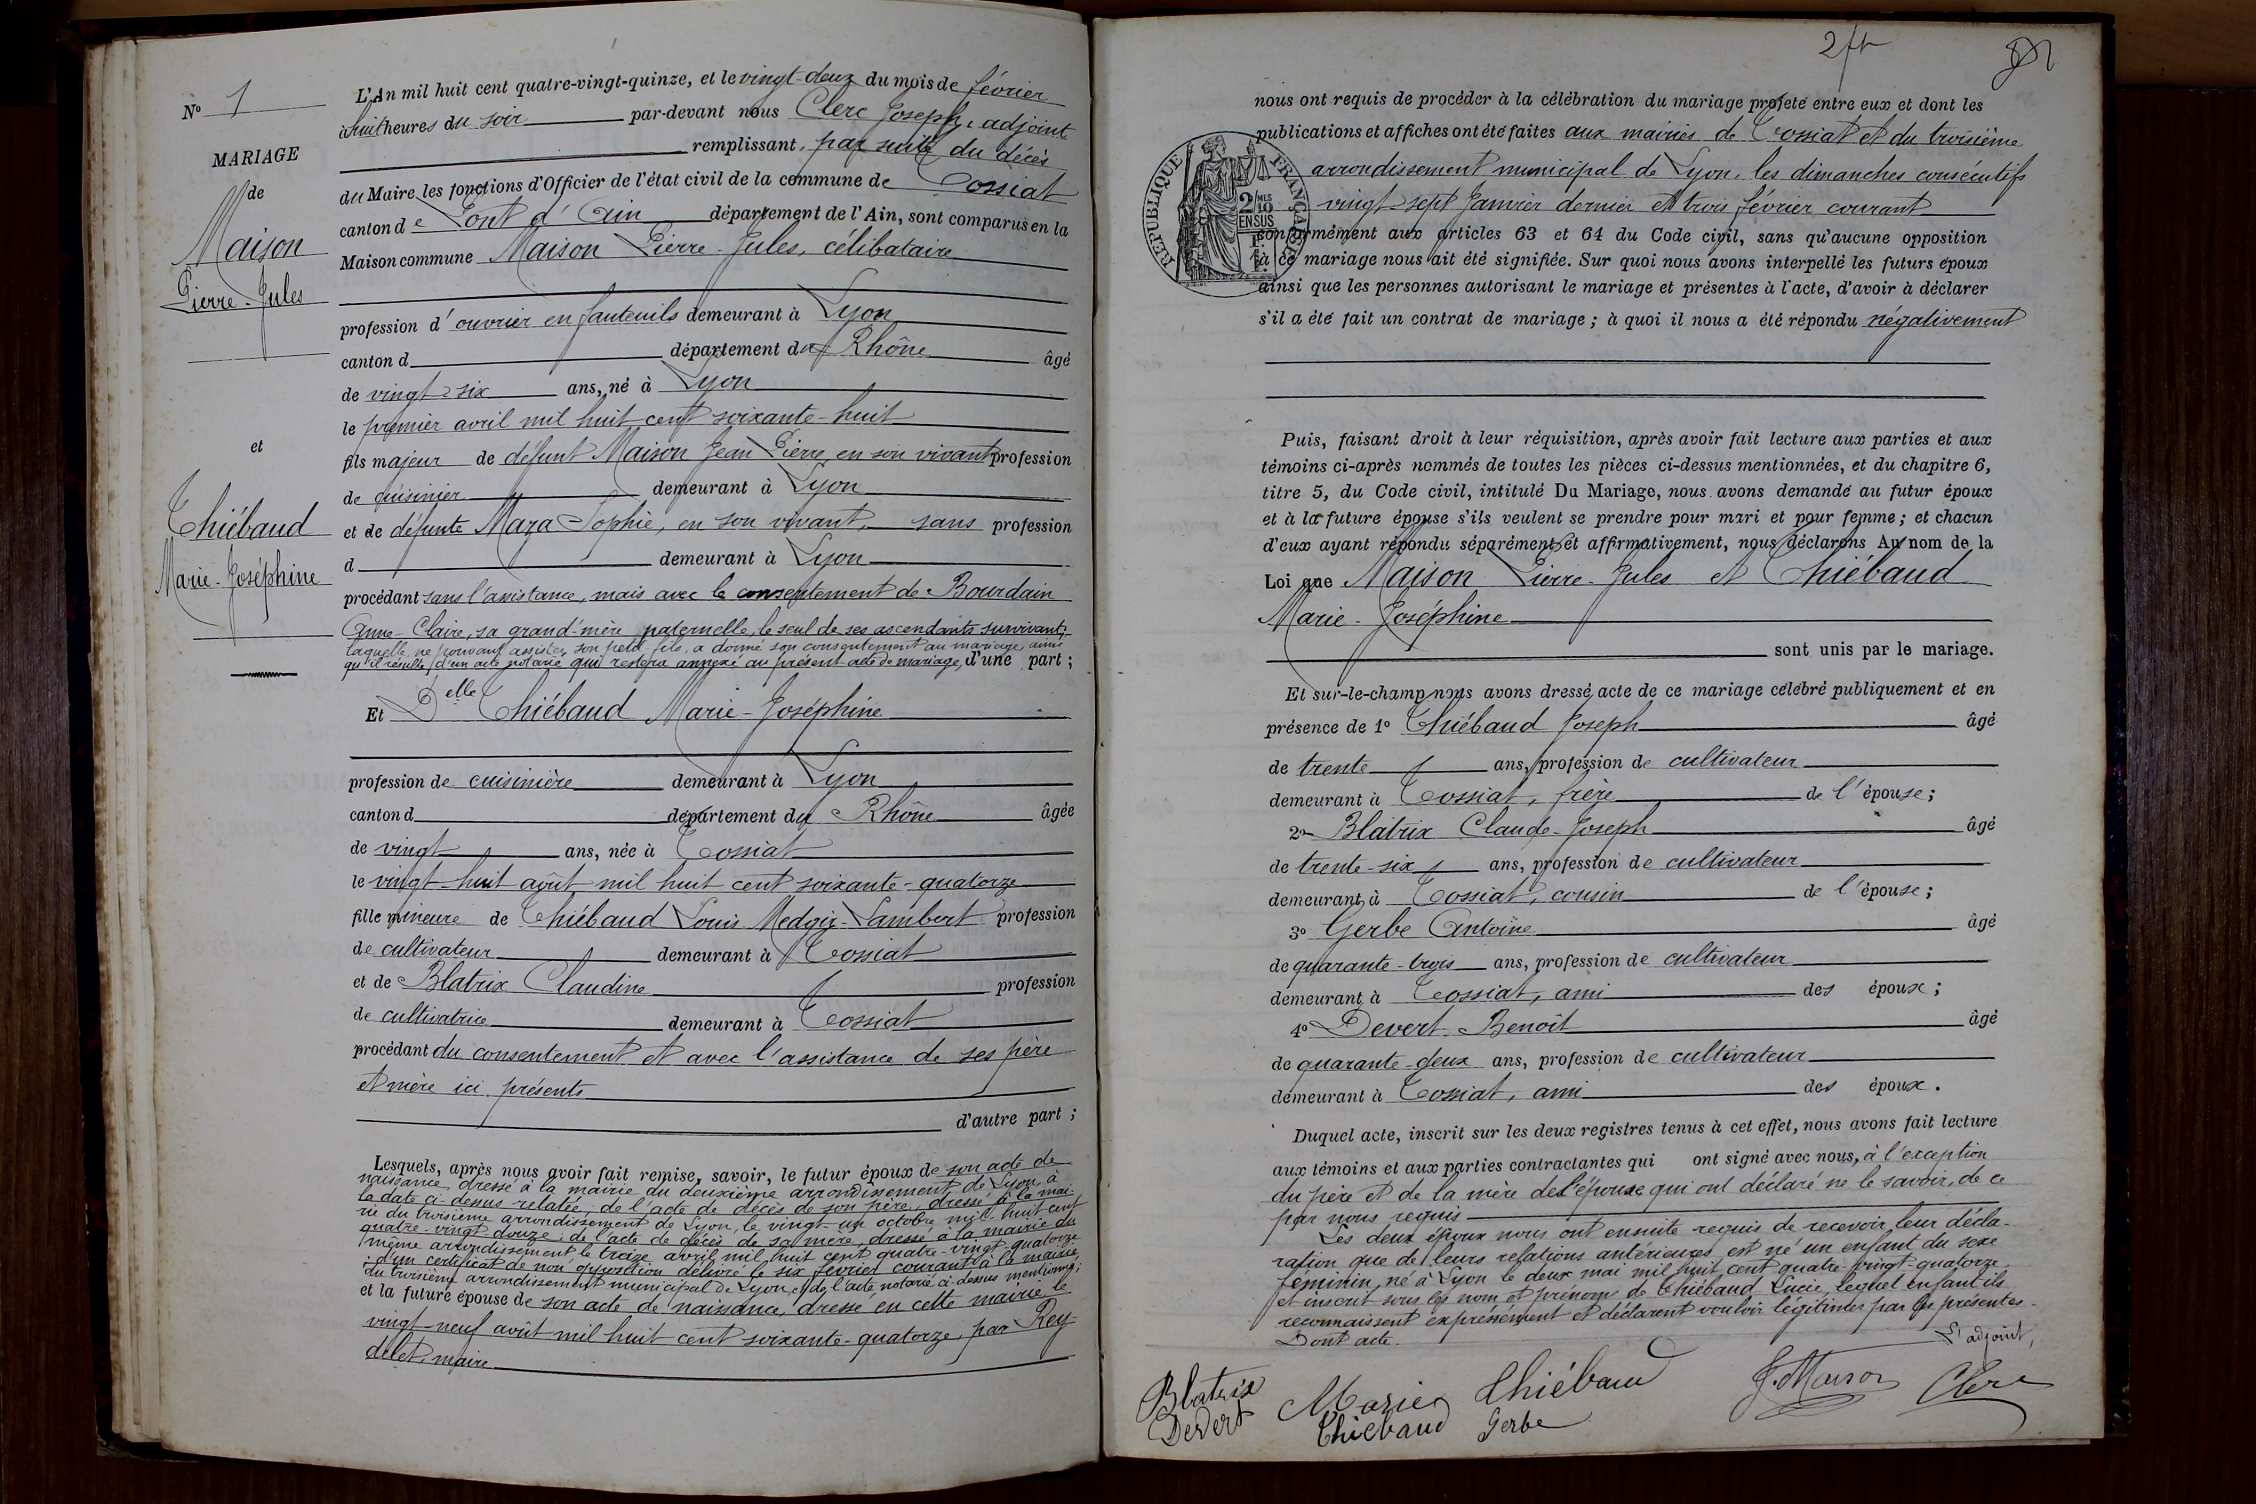 N° 1
MARIAGE
de
Maison
Pierre-Jules
et
Thiébaud
Marie-Joséphine
L'An mil huit cent quatre-vingt-quinze, et le vingt-deux du mois de février
à huit heures du soir par-devant nous Clerc Joseph, adjoint
remplissant, par suite du décès
du Maire les fonctions d'Officier de l'état civil de la commune de Tossiat
canton de Pont d'Ain département de l'Ain, sont comparus en la
Maison commune Maison Pierre-Jules, célibataire
profession d'ouvrier en fauteuils demeurant à Lyon
canton d département du Rhône âgé
de vingt-six ans, né à Lyon
le premier avril mil huit cent soixante-huit
fils majeur de défunt Maison Jean Pierre, en son vivant profession
de cuisinier demeurant à Lyon
et de défunte Maza Sophie, en son vivant, sans profession
d demeurant à Lyon
procédant sans l'assistance, mais avec le consentement de Bourdain
Anne-Claire, sa grand'mère paternelle, le seul de ses ascendants survivant,
laquelle, ne pouvant assister son petit fils, a donné son consentement au mariage, ainsi
qu'il résulte d'un acte notarié qui restera annexé au présent acte de mariage, d'une part ;
Et Delle Thiébaud Marie-Joséphine
profession de cuisinière demeurant à Lyon
canton d département du Rhône âgée
de vingt ans, née à Tossiat
le vingt-huit août mil huit cent soixante-quatorze
fille mineure de Thiébaud Louis Lambert profession
de cultivateur demeurant à Tossiat
et de Blatrix Claudine profession
de cultivatrice demeurant à Tossiat
procédant du consentement et avec l'assistance de ses père
et mère ici présents
d'autre part ;
Lesquels, après nous avoir fait remise, savoir, le futur époux de son acte de
naissance, dressé à la mairie du deuxième arrondissement de Lyon, à
la date ci-dessus relatée, de l'acte de décès de son père, dressé à la mai-
rie du troisième arrondissement de Lyon, le vingt-un octobre mil huit cent
quatre-vingt-douze, de l'acte de décès de sa mère, dressé à la mairie du
même arrondissement le treize avril mil huit cent quatre-vingt-quatorze
d'un certificat de non opposition délivré le six février courant à la mairie
du troisième arrondissement municipal de Lyon, et de l'acte notarié ci-dessus mentionné ;
et la future épouse de son acte de naissance, dressé en cette mairie le
vingt-neuf août mil huit cent soixante-quatorze, par Rey-
delet, maire
2ft
nous ont requis de procéder à la célébration du mariage projeté entre eux et dont les
publications et affiches ont été faites aux mairies de Tossiat et du troisième
arrondissement municipal de Lyon, les dimanches consécutifs
vingt-sept Janvier dernier et trois février courant
conformément aux articles 63 et 64 du Code civil, sans qu'aucune opposition
à ce mariage nous ait été signifiée. Sur quoi nous avons interpellé les futurs époux
ainsi que les personnes autorisant le mariage et présentes à l'acte, d'avoir à déclarer
s'il a été fait un contrat de mariage ; à quoi il nous a été répondu négativement
RÉPUBLIQUE FRANÇAISE
2/10 MES
EN SUS
Puis, faisant droit à leur réquisition, après avoir fait lecture aux parties et aux
témoins ci-après nommés de toutes les pièces ci-dessus mentionnées, et du chapitre 6,
titre 5, du Code civil, intitulé Du Mariage, nous avons demandé au futur époux
et à la future épouse s'ils veulent se prendre pour mari et pour femme ; et chacun
d'eux ayant répondu séparément et affirmativement, nous déclarons Au nom de la
Loi que Maison Pierre-Jules et Thiébaud
Marie-Joséphine
sont unis par le mariage.
Et sur-le-champ nous avons dressé acte de ce mariage célébré publiquement et en
présence de 1° Thiébaud Joseph âgé
de trente ans, profession de cultivateur
demeurant à Tossiat, frère de l'épouse ;
2° Blatrix Claude-Joseph âgé
de trente-six ans, profession de cultivateur
demeurant à Tossiat, cousin de l'épouse ;
3° Gerbe Antoine âgé
de quarante-trois ans, profession de cultivateur
demeurant à Tossiat, ami des époux ;
4° Devert Benoît âgé
de quarante-deux ans, profession de cultivateur
demeurant à Tossiat, ami des époux.
Duquel acte, inscrit sur les deux registres tenus à cet effet, nous avons fait lecture
aux témoins et aux parties contractantes qui ont signé avec nous, à l'exception
du père et de la mère de l'épouse qui ont déclaré ne le savoir, de ce
par nous requis
Les deux époux nous ont ensuite requis de recevoir leur décla-
ration que de leurs relations antérieures est né un enfant du sexe
féminin, né à Lyon le deux mai mil huit cent quatre-vingt-quatorze
et inscrit sous les nom et prénom de Thiébaud Lucie, lequel enfant ils
reconnaissent expressément et déclarent vouloir légitimer par les présentes.
Dont acte. L'adjoint,
Blatrix Marie Thiébaud J. Maison Clerc
Devert Thiébaud Gerbe